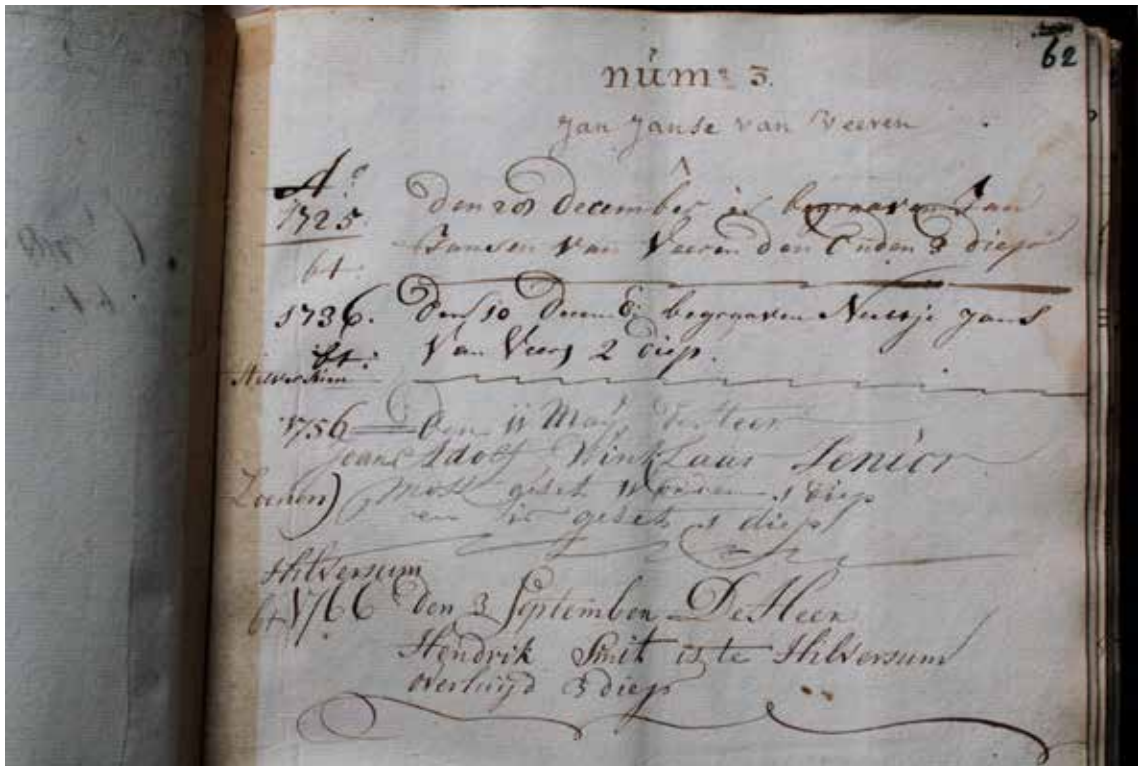 62
num:o 3.
Jan Janse van Veeren
Ao
1725. Den 28 December is begraaven Jan
Jansen Van Veeren den Ouden 3 diep
bt.
1736. Den 10 Decemb: begraaven Neeltje Jans
bt. Van Veers 2 diep.
Hilversum
1756 Den 11 May De Heer
Adolf Winklaar Senior
Loenen) geset worden 1 diep
en is geset 1 diep
Hilversum
bt 1766 Den 3 September De Heer
Hendrik Smit is te Hilversum
overluijd 3 diep